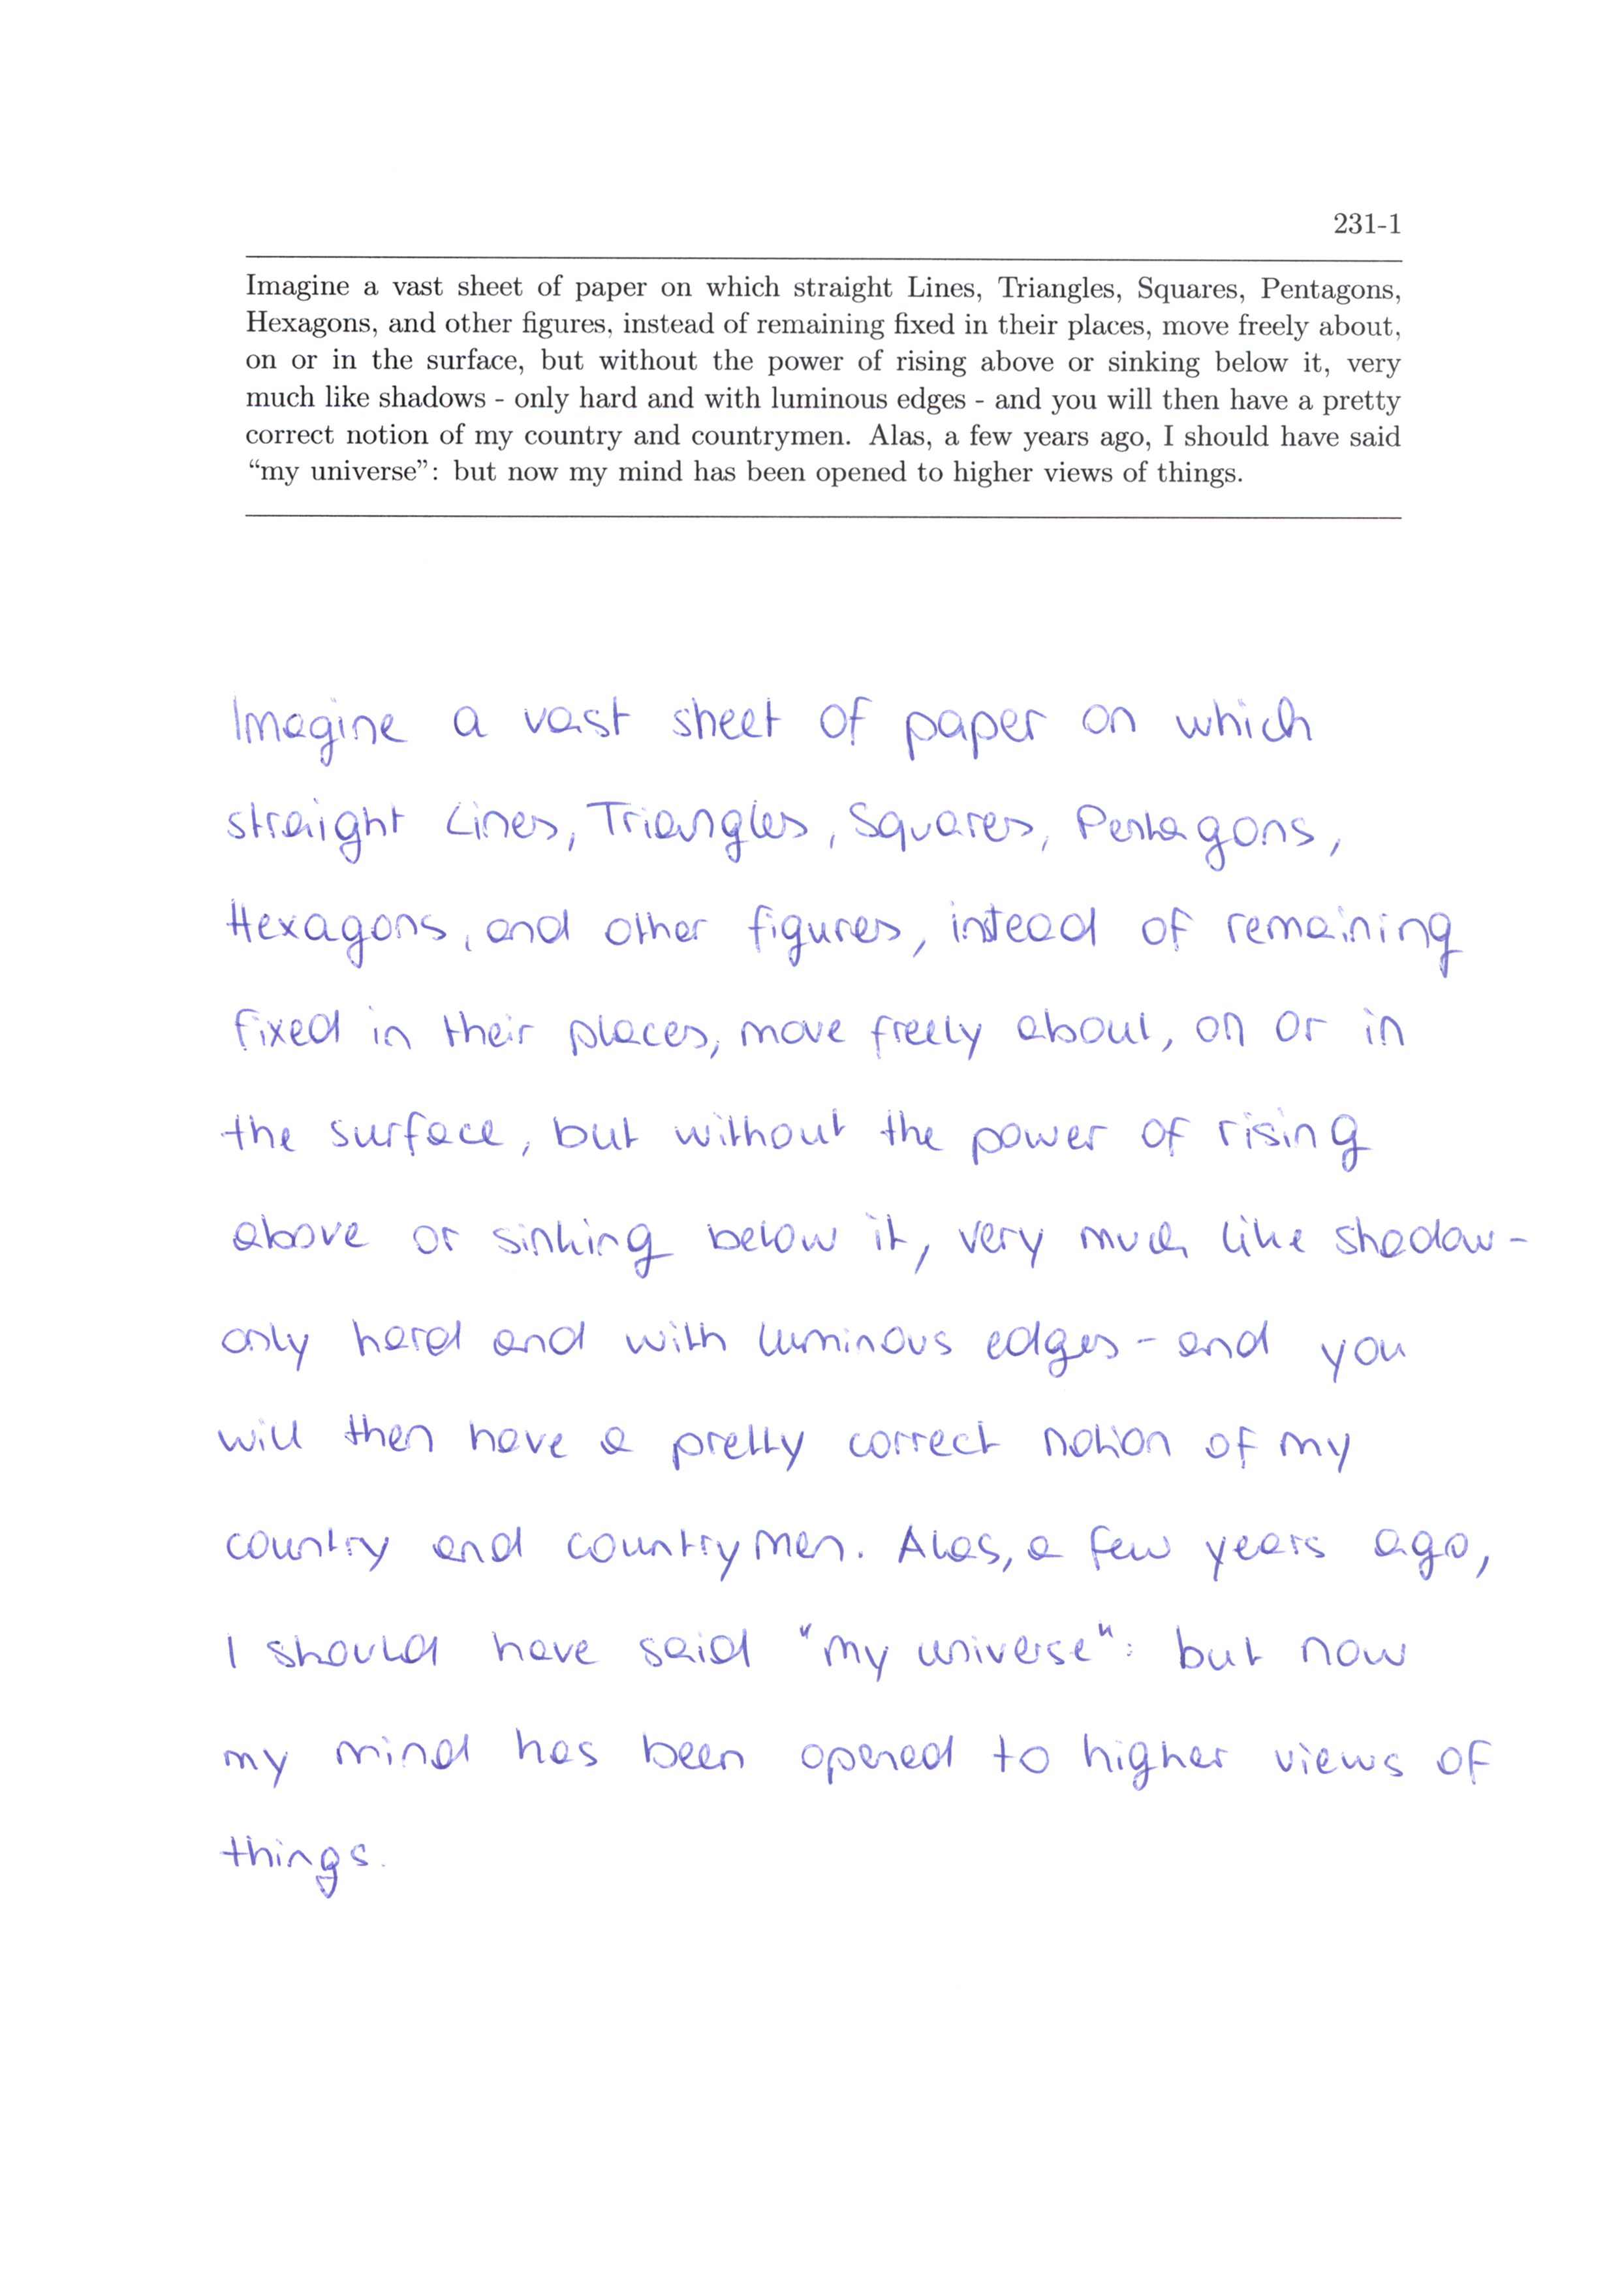 231-1
Imagine a vast sheet of paper on which straight Lines, Triangles, Squares, Pentagons,
Hexagons, and other figures, instead of remaining fixed in their places, move freely about,
on or in the surface, but without the power of rising above or sinking below it, very
much like shadows - only hard and with luminous edges - and you will then have a pretty
correct notion of my country and countrymen. Alas, a few years ago, I should have said
“my universe”: but now my mind has been opened to higher views of things.
Imagine a vast sheet of paper on which
straight Lines, Triangles, Squares, Pentagons,
Hexagons, and other figures, instead of remaining
fixed in their places, move freely about, on or in
the surface, but without the power of rising
above or sinking below it, very much like shadow -
only hard and with luminous edges - and you
will then have a pretty correct notion of my
country and countrymen. Alas, a few years ago,
I should have said "my universe": but now
my mind has been opened to higher views of
things.